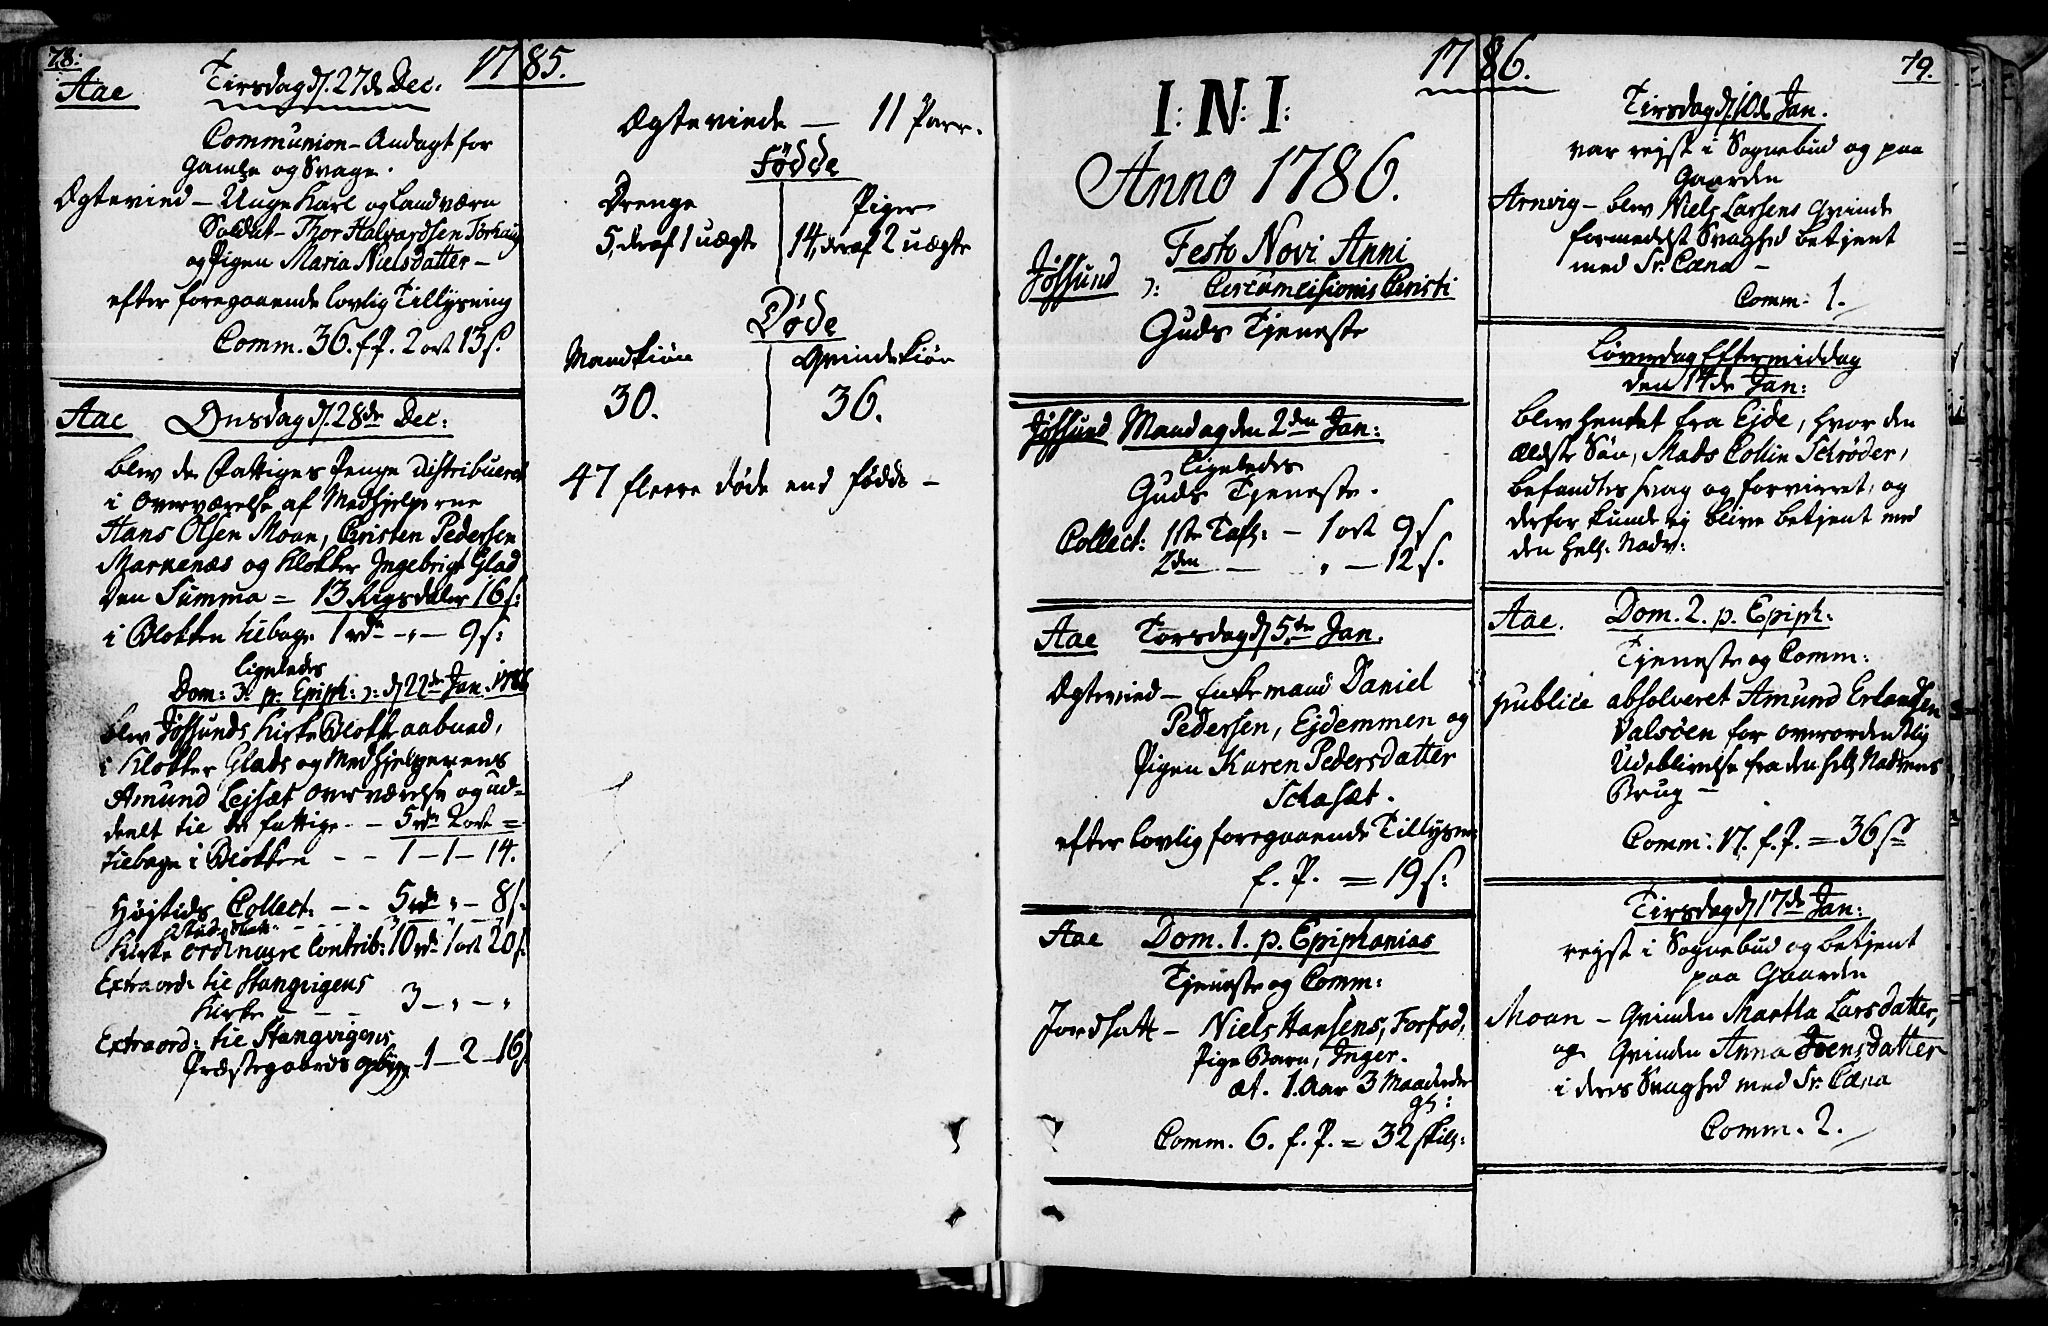 78.
1785.
Aae Tirsdag d. 27de Dec:
Communion-Andagt for
gamle og Svage.
Ægteviede – Unge Karl og Landværn
Soldat – Thor Halvardsen Torhaug
og Pigen Maria Nielsdatter –
efter foregaaende lovlig Tillysning
Comm. 36. f. P. 2 ort 13 s.
Aae Onsdag d. 28de Dec:
blev de Fattiges Penge distribueret
i Overværelse af Medhjelperne
Hans Olsen Moan, Christen Pedersen
Marknæs og Klokker Ingebrigt Glad
den Summa = 13 Rigsdaler 16 s:
i Blokken tilbage 1 rdr – „ – 9 s:
Ligeledes
Dom: 3. p. Epiph: ɔ: d. 22de Jan. 1786
blev Jøssunds Kirke Blokk aabned,
i Klokker Glads og Medhjelperens
Amund Lejsæt Overværelse og ud-
deelt til de fattige – – 5 rdr 2 ort =
tilbage i Blokken – – 1 – 1 – 14.
Højtids Collect: – – 5 rdr „ – 8 s.
Kirke ordinaire Contrib: 10 rdr 1 ort 20 s.
Extraord: til Stangvigens
Kirke – – – 3 – „ – „
Extraord: til Stangvigens
Præstegaards opbygn – 1 – 2 – 16 s
Ægteviede — 11 Parr.
Fødde
Drenge Piger
5, deraf 1 uægte 14, deraf 2 uægte
Døde
Mandkiøn Qvindekiøn
30. 36.
47 fleere døde end fødde –
1786.
79.
I: N: I:
Anno 1786.
Festo Novi Anni
Jøssund ɔ: Circumcisionis Christi
Guds Tjeneste
Jøssund Mandag den 2den Jan:
Ligeledes
Guds Tjeneste.
Collect: 1ste Tafl: – 1 ort 9 s
2den — „ — 12 s.
Aae Torsdag d. 5te Jan.
Ægteviede – Enkemand Daniel
Pedersen, Ejdemmen og
Pigen Karen Pedersdatter
Schasæt.
efter lovlig foregaaende Tillysn:
f. P. = 19 s:
Aae Dom. 1. p. Epiphanias
Tjeneste og Comm:
Jordsatt – Niels Hansens, Forfod,
Pige Barn, Inger.
æt. 1. Aar 3 Maaneder
gl:
Comm. 6. f. P. = 32 skil:
Tirsdag d. 10de Jan.
var rejst i Sognebud og paa
Gaarden
Arnvig – blev Niels Larsens Qvinde
formedelst Svaghed betjent
med Sr. Cæna –
Comm: 1.
Løverdag Eftermiddag
den 14de Jan:
blev hentet fra Ejde, hvor den
ældste Søn, Mads Collin Schrøder,
befandtes svag og forvirret, og
derfor kunde ej blive betjent med
den hell: Nadv:
Aae. Dom. 2. p. Epiph:
Tjeneste og Comm:
publice absolveret Amund Erlandsen
Valsøen for overordentlig
Udeblivelse fra den hell Nadveres
Brug –
Comm: 17. f. P. = 36 s
Tirsdag d. 17de Jan:
rejst i Sognebud og betjent
paa Gaarden
Moan – Qvinden Martha Larsdatter,
og Qvinden Anna Joensdatter
i deres Svaghed med Sr. Cæna
Comm. 2.